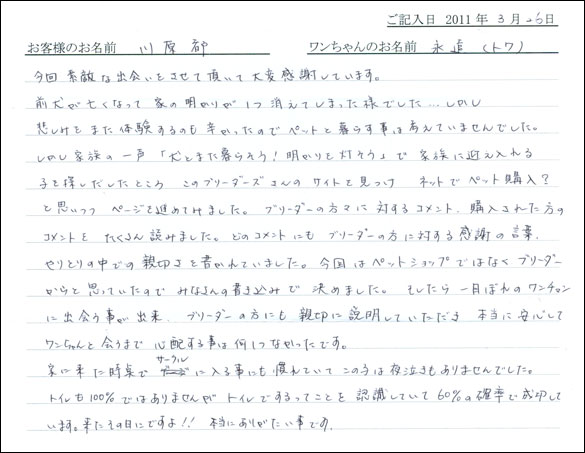 ご記入日 2011年 3月 26日
お客様のお名前 川原 都 ワンちゃんのお名前 永遠 (トワ)
今回 素敵な出会いをさせて頂いて大変感謝しています。
前犬が亡くなって 家の明かりが1つ消えてしまった様でした…しかし
悲しみをまた体験するのも辛かったのでペットと暮らす事は考えていませんでした。
しかし家族の一声「犬とまた暮らそう！明かりを灯そう」で 家族に迎え入れる
子を探しだしたところ このブリーダーズさんのサイトを見つけ ネットでペット購入？
と思いつつ ページを進めてみました。ブリーダーの方々に対するコメント、購入された方の
コメントを たくさん読みました。どのコメントにもブリーダーの方に対する感謝の言葉、
やりとりの中での親切さを書かれていました。今回はペットショップではなくブリーダー
からと思っていたので みなさんの書き込みで 決めました。そしたら一目ぼれのワンチャン
に出会う事が出来、ブリーダーの方にも親切に説明していただき 本当に安心して
ワンちゃんと会うまで心配する事は何1つなかったです。
家に来た時点で サークルに入る事にも慣れていてこの子は夜泣きもありませんでした。
トイレも100%ではありませんが トイレでするってことを認識していて60%の確率で成功して
います。来たその日にですよ!! 本当にありがたい事です。